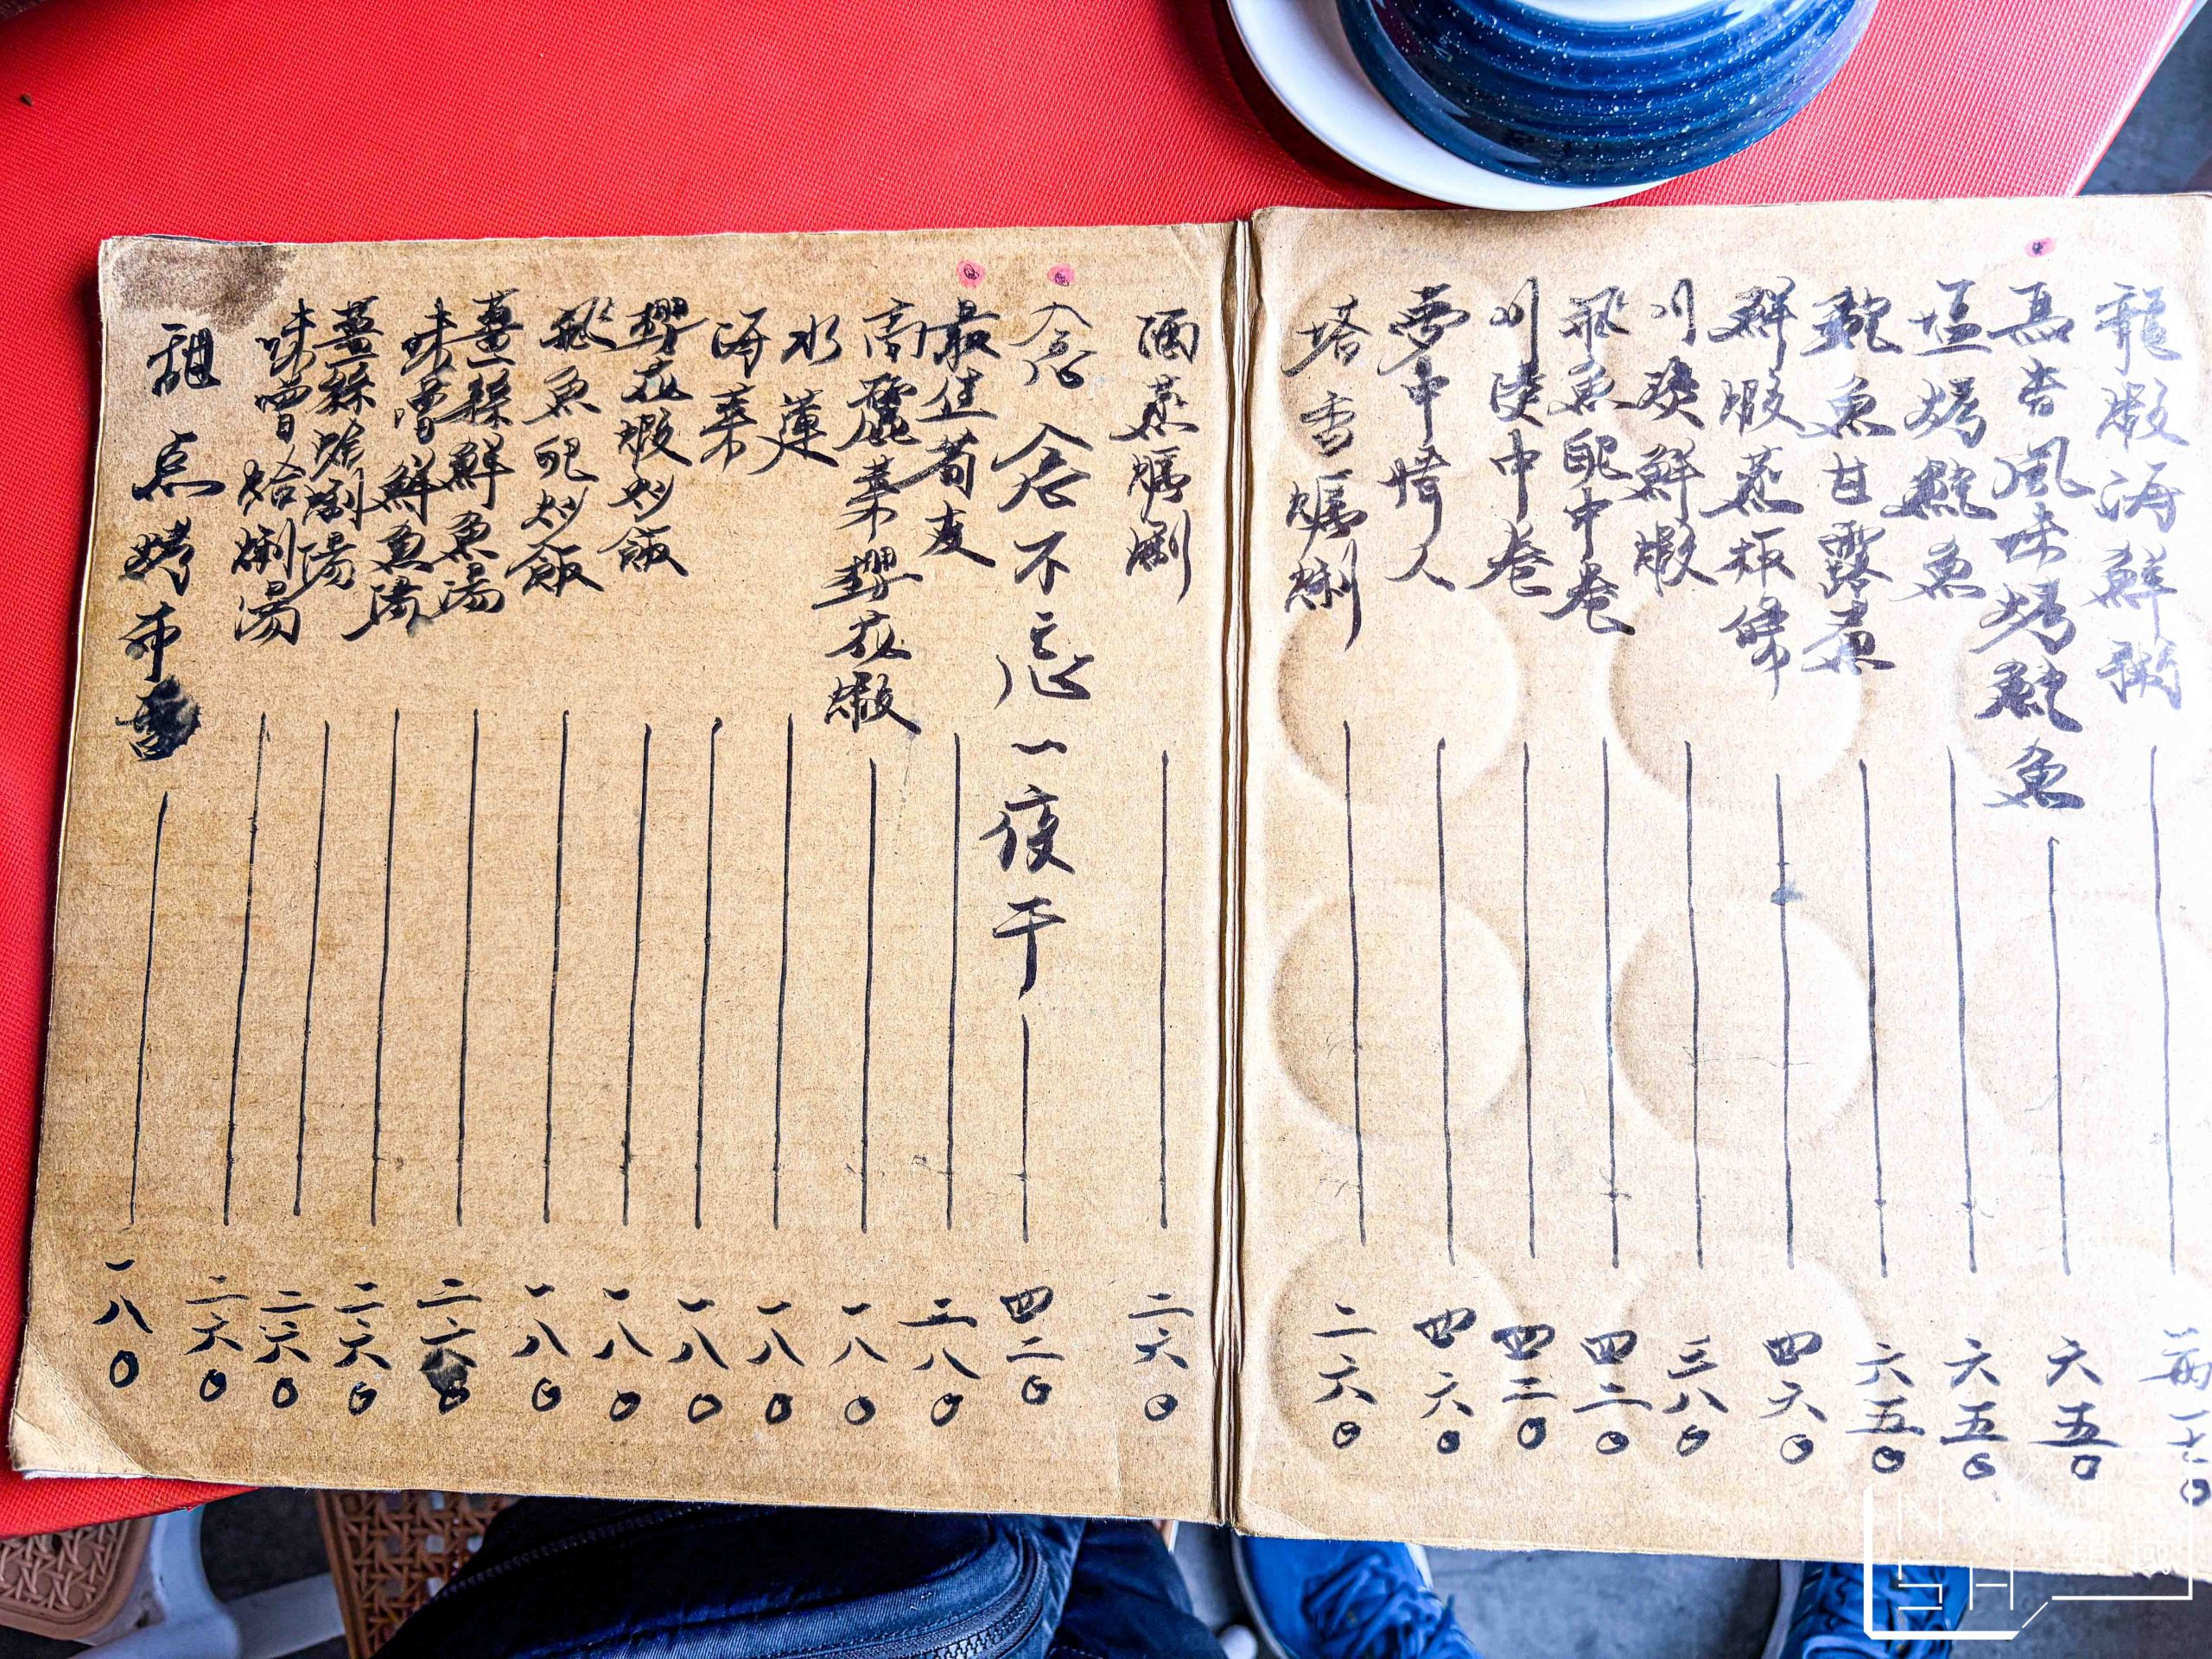 龍蝦海鮮粥 兩千二〇
馬告風味烤魚 六五〇
塩烤魚 六五〇
魚甘露煮 六五〇
鮮蝦蒸板條 四六〇
川燙鮮蝦 三八〇
飛魚卵中卷 四二〇
川燙中卷 四二〇
夢中情人 四六〇
塔香蛤蜊 二六〇
酒蒸蛤蜊 二六〇
念念不忘一夜干 四二〇
最佳荀友 二八〇
高麗菜櫻花蝦 一八〇
水蓮 一八〇
海菜 一八〇
櫻花蝦炒飯 一八〇
飛魚卵炒飯 一八〇
薑絲鮮魚湯 二六〇
味噌鮮魚湯 二六〇
薑絲蛤蜊湯 二六〇
味噌蛤蜊湯 二六〇
甜点烤布蕾 一八〇